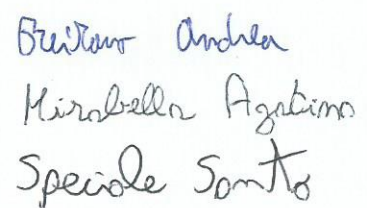 Andrea
Mirabella Agatino
Speciale Santo